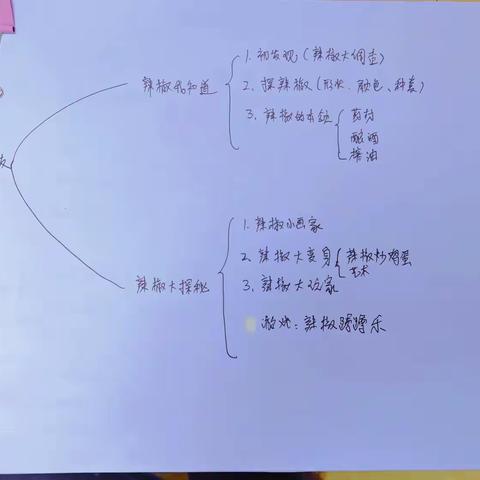 辣椒我知道
1. 初发现（辣椒大调查）
2. 探辣椒（形状、颜色、种类）
3. 辣椒的本领
药材
酿酒
榨油
辣椒大探秘
1. 辣椒小画家
2. 辣椒大变身
辣椒炒鸡蛋
艺术
3. 辣椒大玩家
游戏：辣椒蹲蹲乐